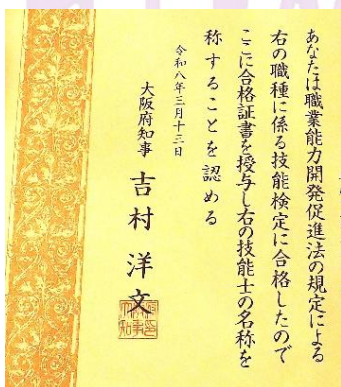 あなたは職業能力開発促進法の規定による
右の職種に係る技能検定に合格したので
ここに合格証書を授与し右の技能士の名称を
称することを認める
令和八年三月十三日
大阪府知事 吉村洋文